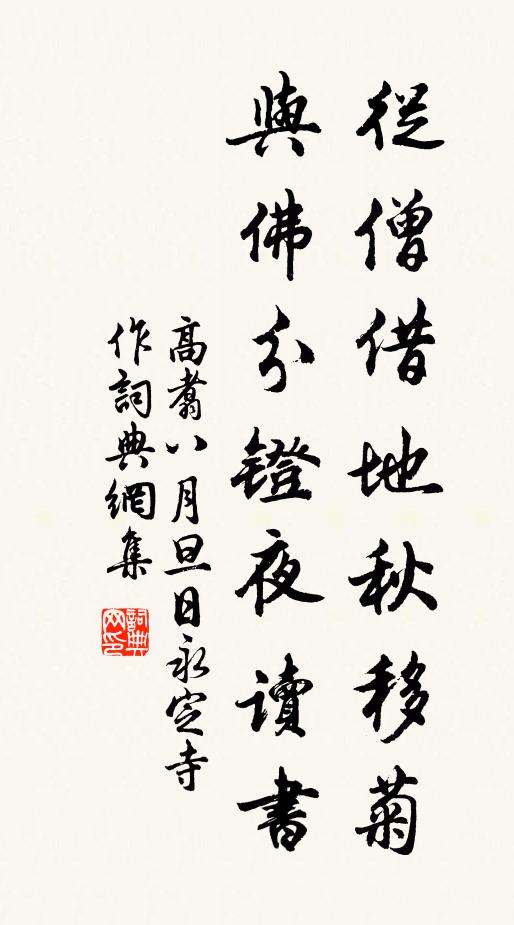 從僧借地秋移菊
與佛分鐙夜讀書
高翥八月旦日永定寺
作詞典網集
詞典网印